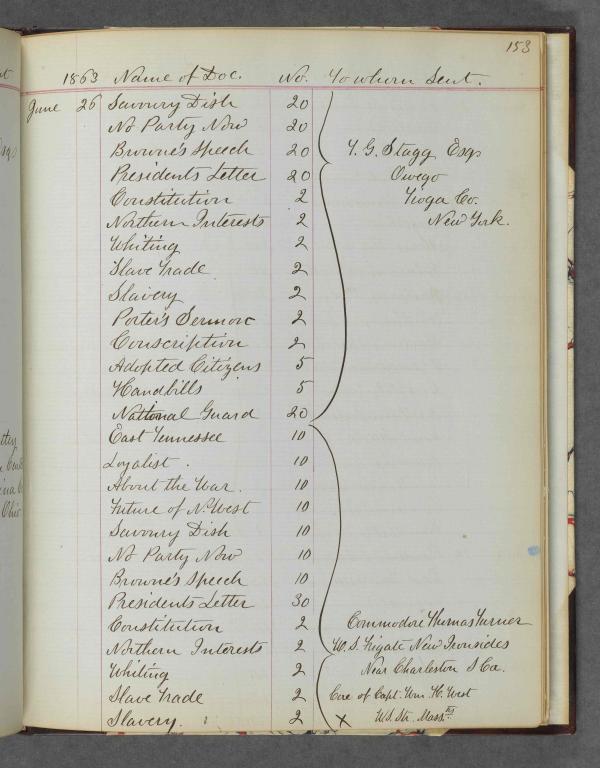 153
1863 Name of Doc. No. To whom Sent.
June 26 Savoury Dish 20
No Party Now 20
Browne's Speech 20 Y. G. Stagg Esqr
Presidents Letter 20 Owego
Constitution 2 Tioga Co.
Northern Interests 2 New York.
Whiting 2
Slave Trade 2
Slavery 2
Porter's Sermon 2
Conscription 2
Adopted Citizens 5
Handbills 5
National Guard 20
East Tennessee 10
Loyalist. 10
About the War. 10
Future of No. West 10
Savoury Dish 10
No Party Now 10
Browne's Speech 10
Presidents Letter 30
Constitution 2 Commodore Thomas Turner
Northern Interests 2 U.S. Frigate New Ironsides
Whiting 2 Near Charleston S Ca.
Slave Trade 2 Care of Capt. Wm. H. West
Slavery. 2 X U.S. Str. Masstts